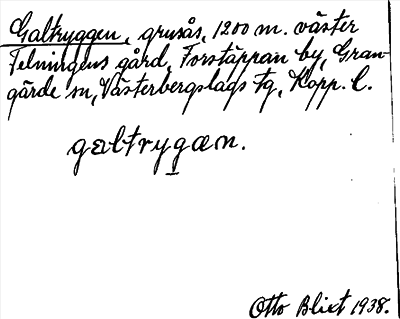 Galtryggen, grusås, 1200 m. väster
Felningens gård, Forstäppan by, Gran-
gärde sn, Västerbergslags tg, Kopp. l.
galtrygæn.
Otto Blixt 1938.